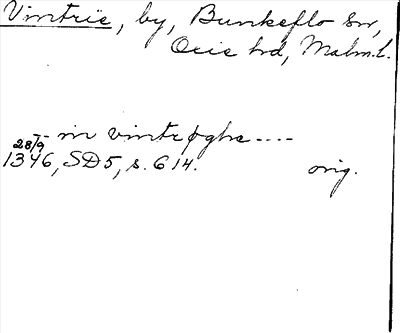 Vintrie, by, Bunkeflo sn,
Oxie hd, Malm.l.
-- in vintrøghæ ----
28/9
1346, SD5, s. 614. orig.